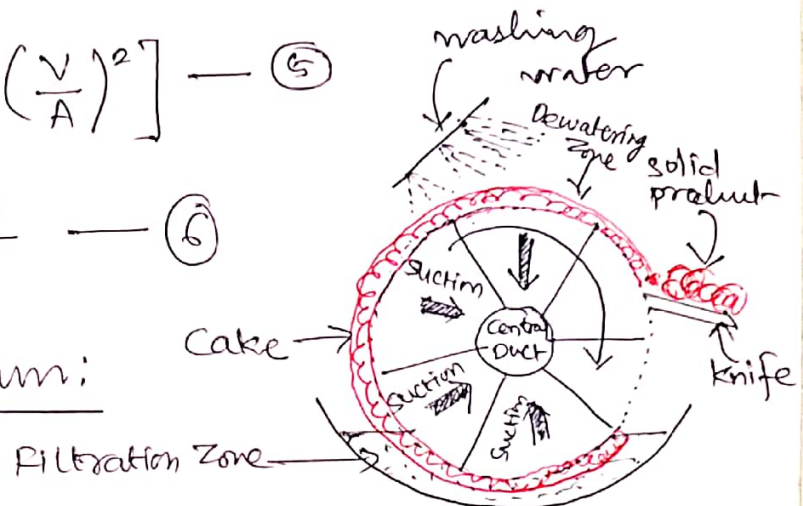 (V/A)²] — ⑤
— ⑥
um:
washing
water
Dewatering
Zone
solid
product
suction
Central
Duct
Cake
suction
suction
Knife
Filtration Zone